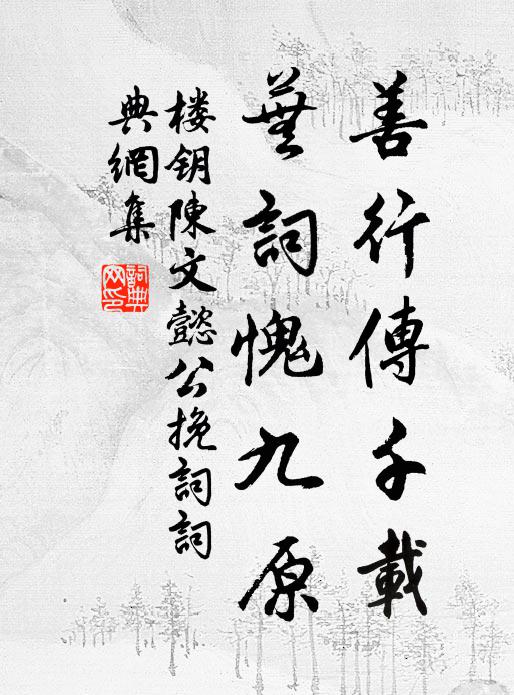 善行傳千載
蕪詞愧九原
楼钥陳文懿公挽詞詞
典網集
詞典網印